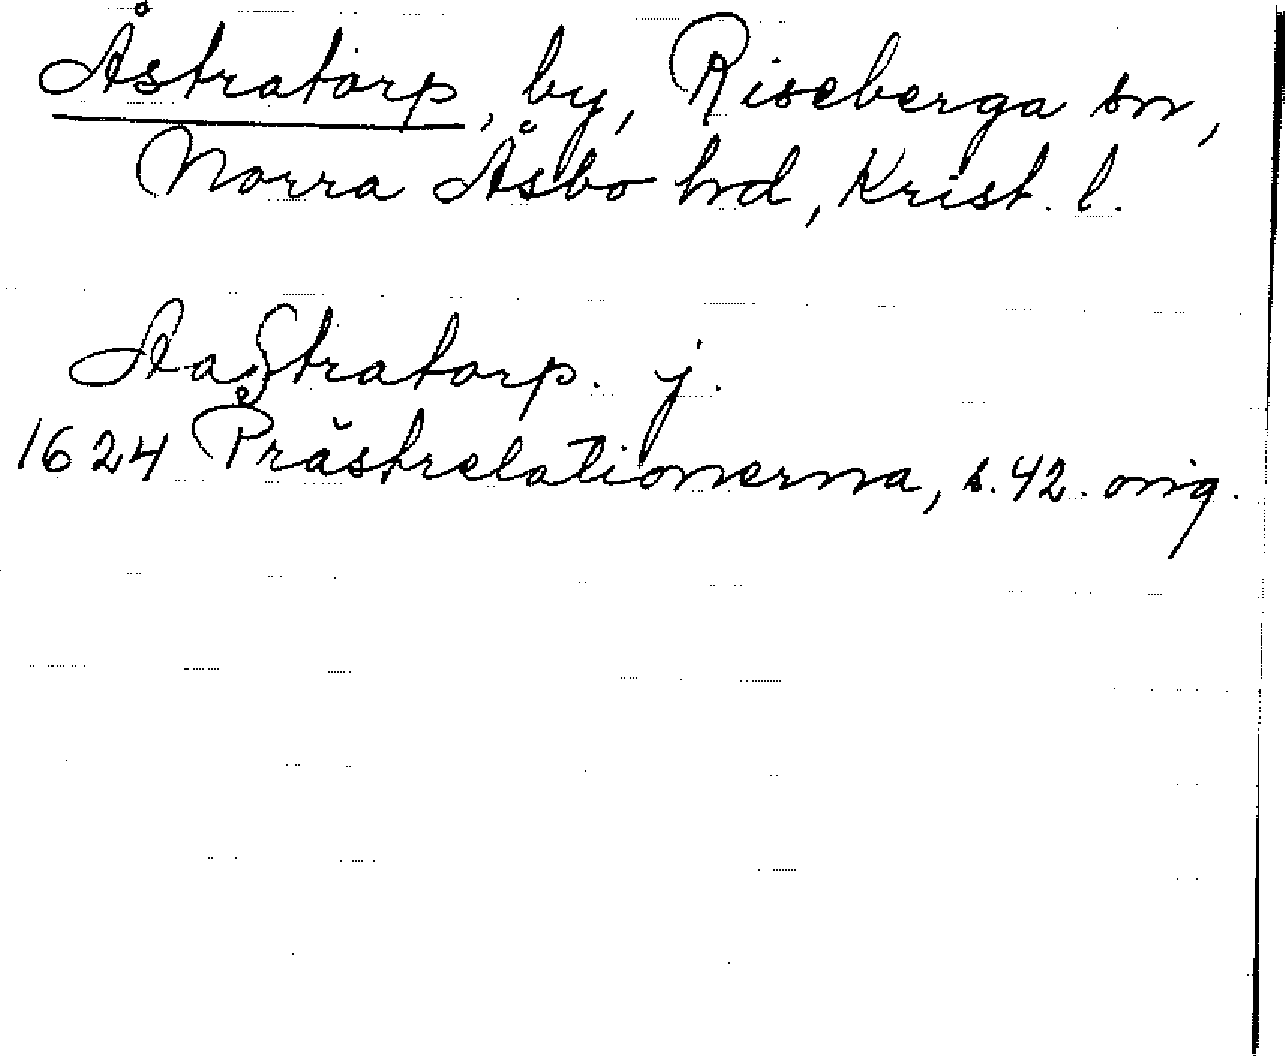 Åstratorp, by, Riseberga sn,
Norra Åsbo hd, Krist. l.
AaStratorp. j.
1624 Prästrelationerna, s. 42. orig.